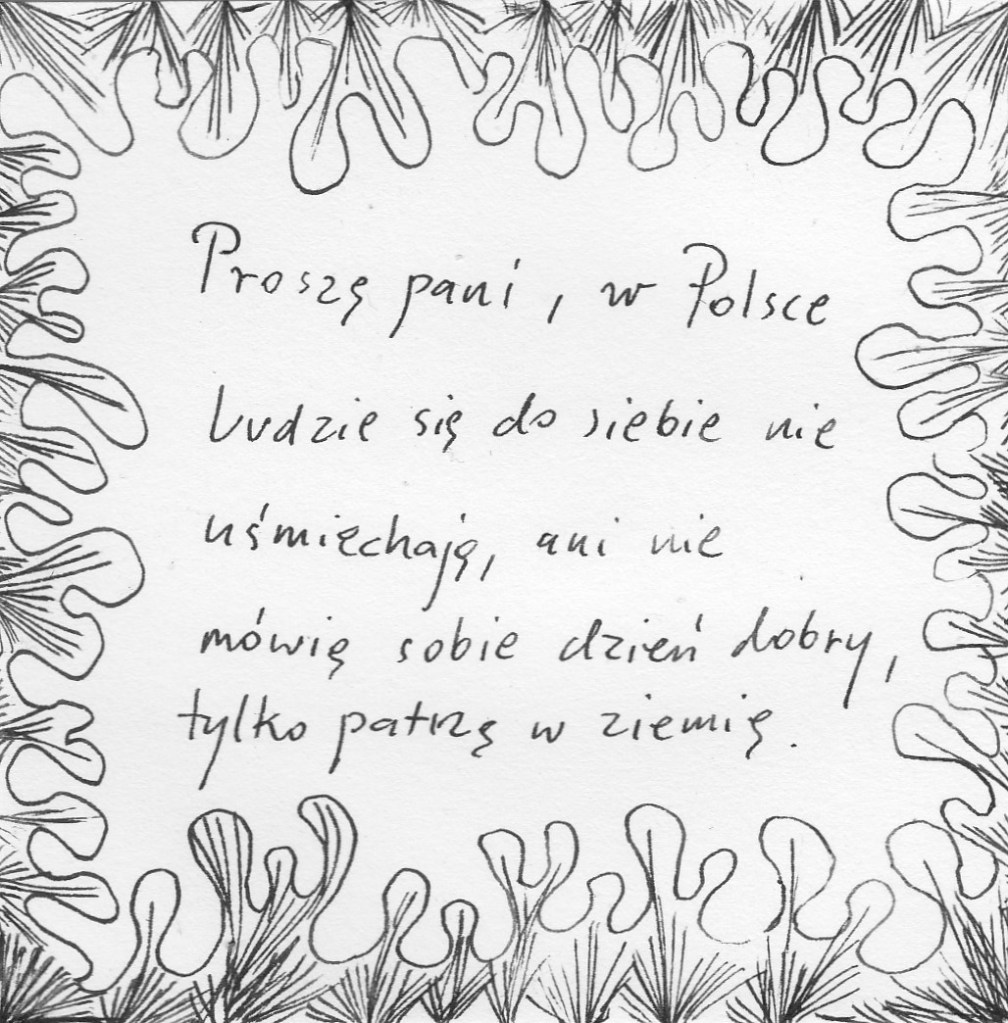 Proszę pani, w Polsce
ludzie się do siebie nie
uśmiechają, ani nie
mówią sobie dzień dobry,
tylko patrzą w ziemię.